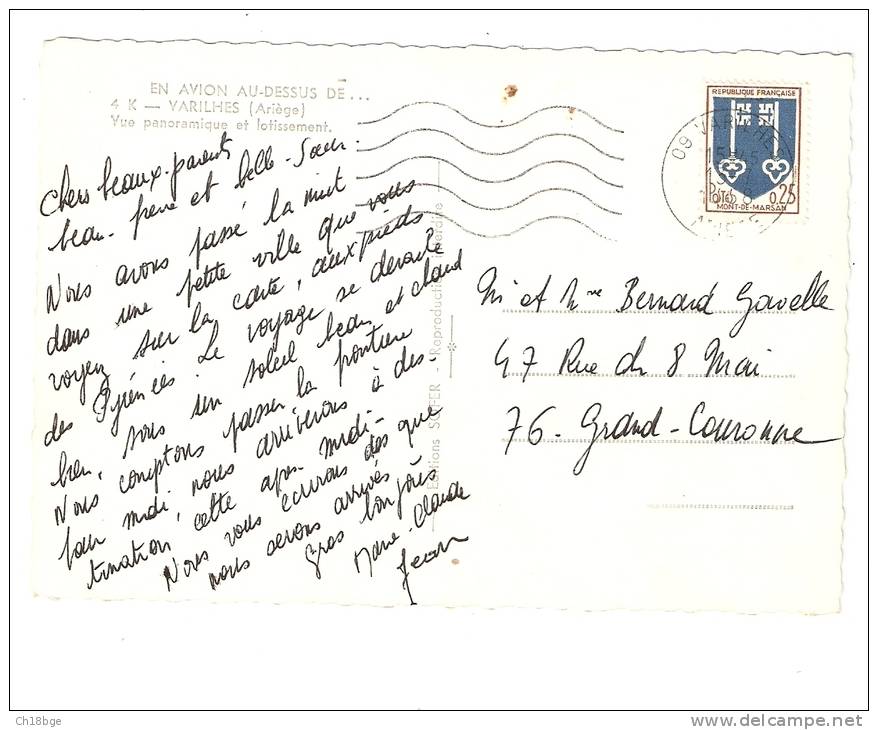 EN AVION AU-DESSUS DE...
4 K — VARILHES (Ariège)
Vue panoramique et lotissement.
Chers beaux-parents
beau-frère et belle-Sœur.
Nous avons passé la nuit
dans une petite ville que vous
voyez sur la carte, aux pieds
des Pyrénées. Le voyage se déroule
bien, sous un soleil beau et chaud
Nous comptons passer la frontière
pour midi, nous arriverons à des-
tination, cette après-midi-
Nous vous écrirons dès que
nous serons arrivés
Gros bonjours
Marie-Claude
Jean
Editions SOFER - Reproduction interdite
REPUBLIQUE FRANÇAISE
Postes 0,25
MONT-DE-MARSAN
09 VARILHES
ARIEGE
M et Mme Bernard Gavelle
47 Rue du 8 Mai
76- Grand-Couronne
Ch18bge
www.delcampe.net